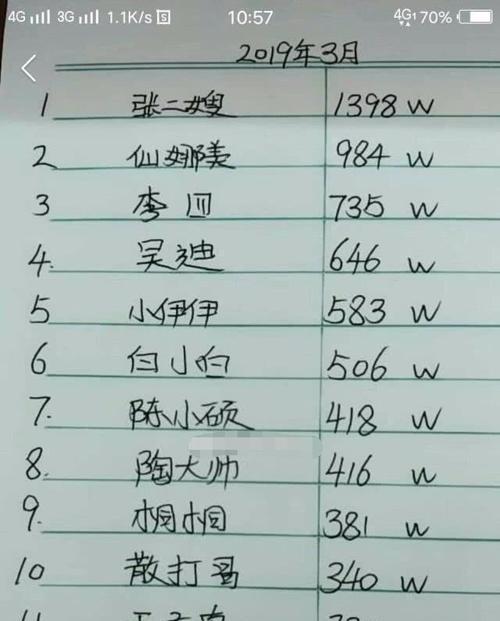 4G 3G 1.1K/s S 10:57 4G 70%
2019年3月
1 张二嫂 1398 W
2 仙娜美 984 W
3 李四 735 W
4. 吴迪 646 W
5 小伊伊 583 W
6 白小白 506 W
7. 陈小硕 418 W
8. 陶大帅 416 W
9. 桐桐 381 W
10 散打哥 340 W